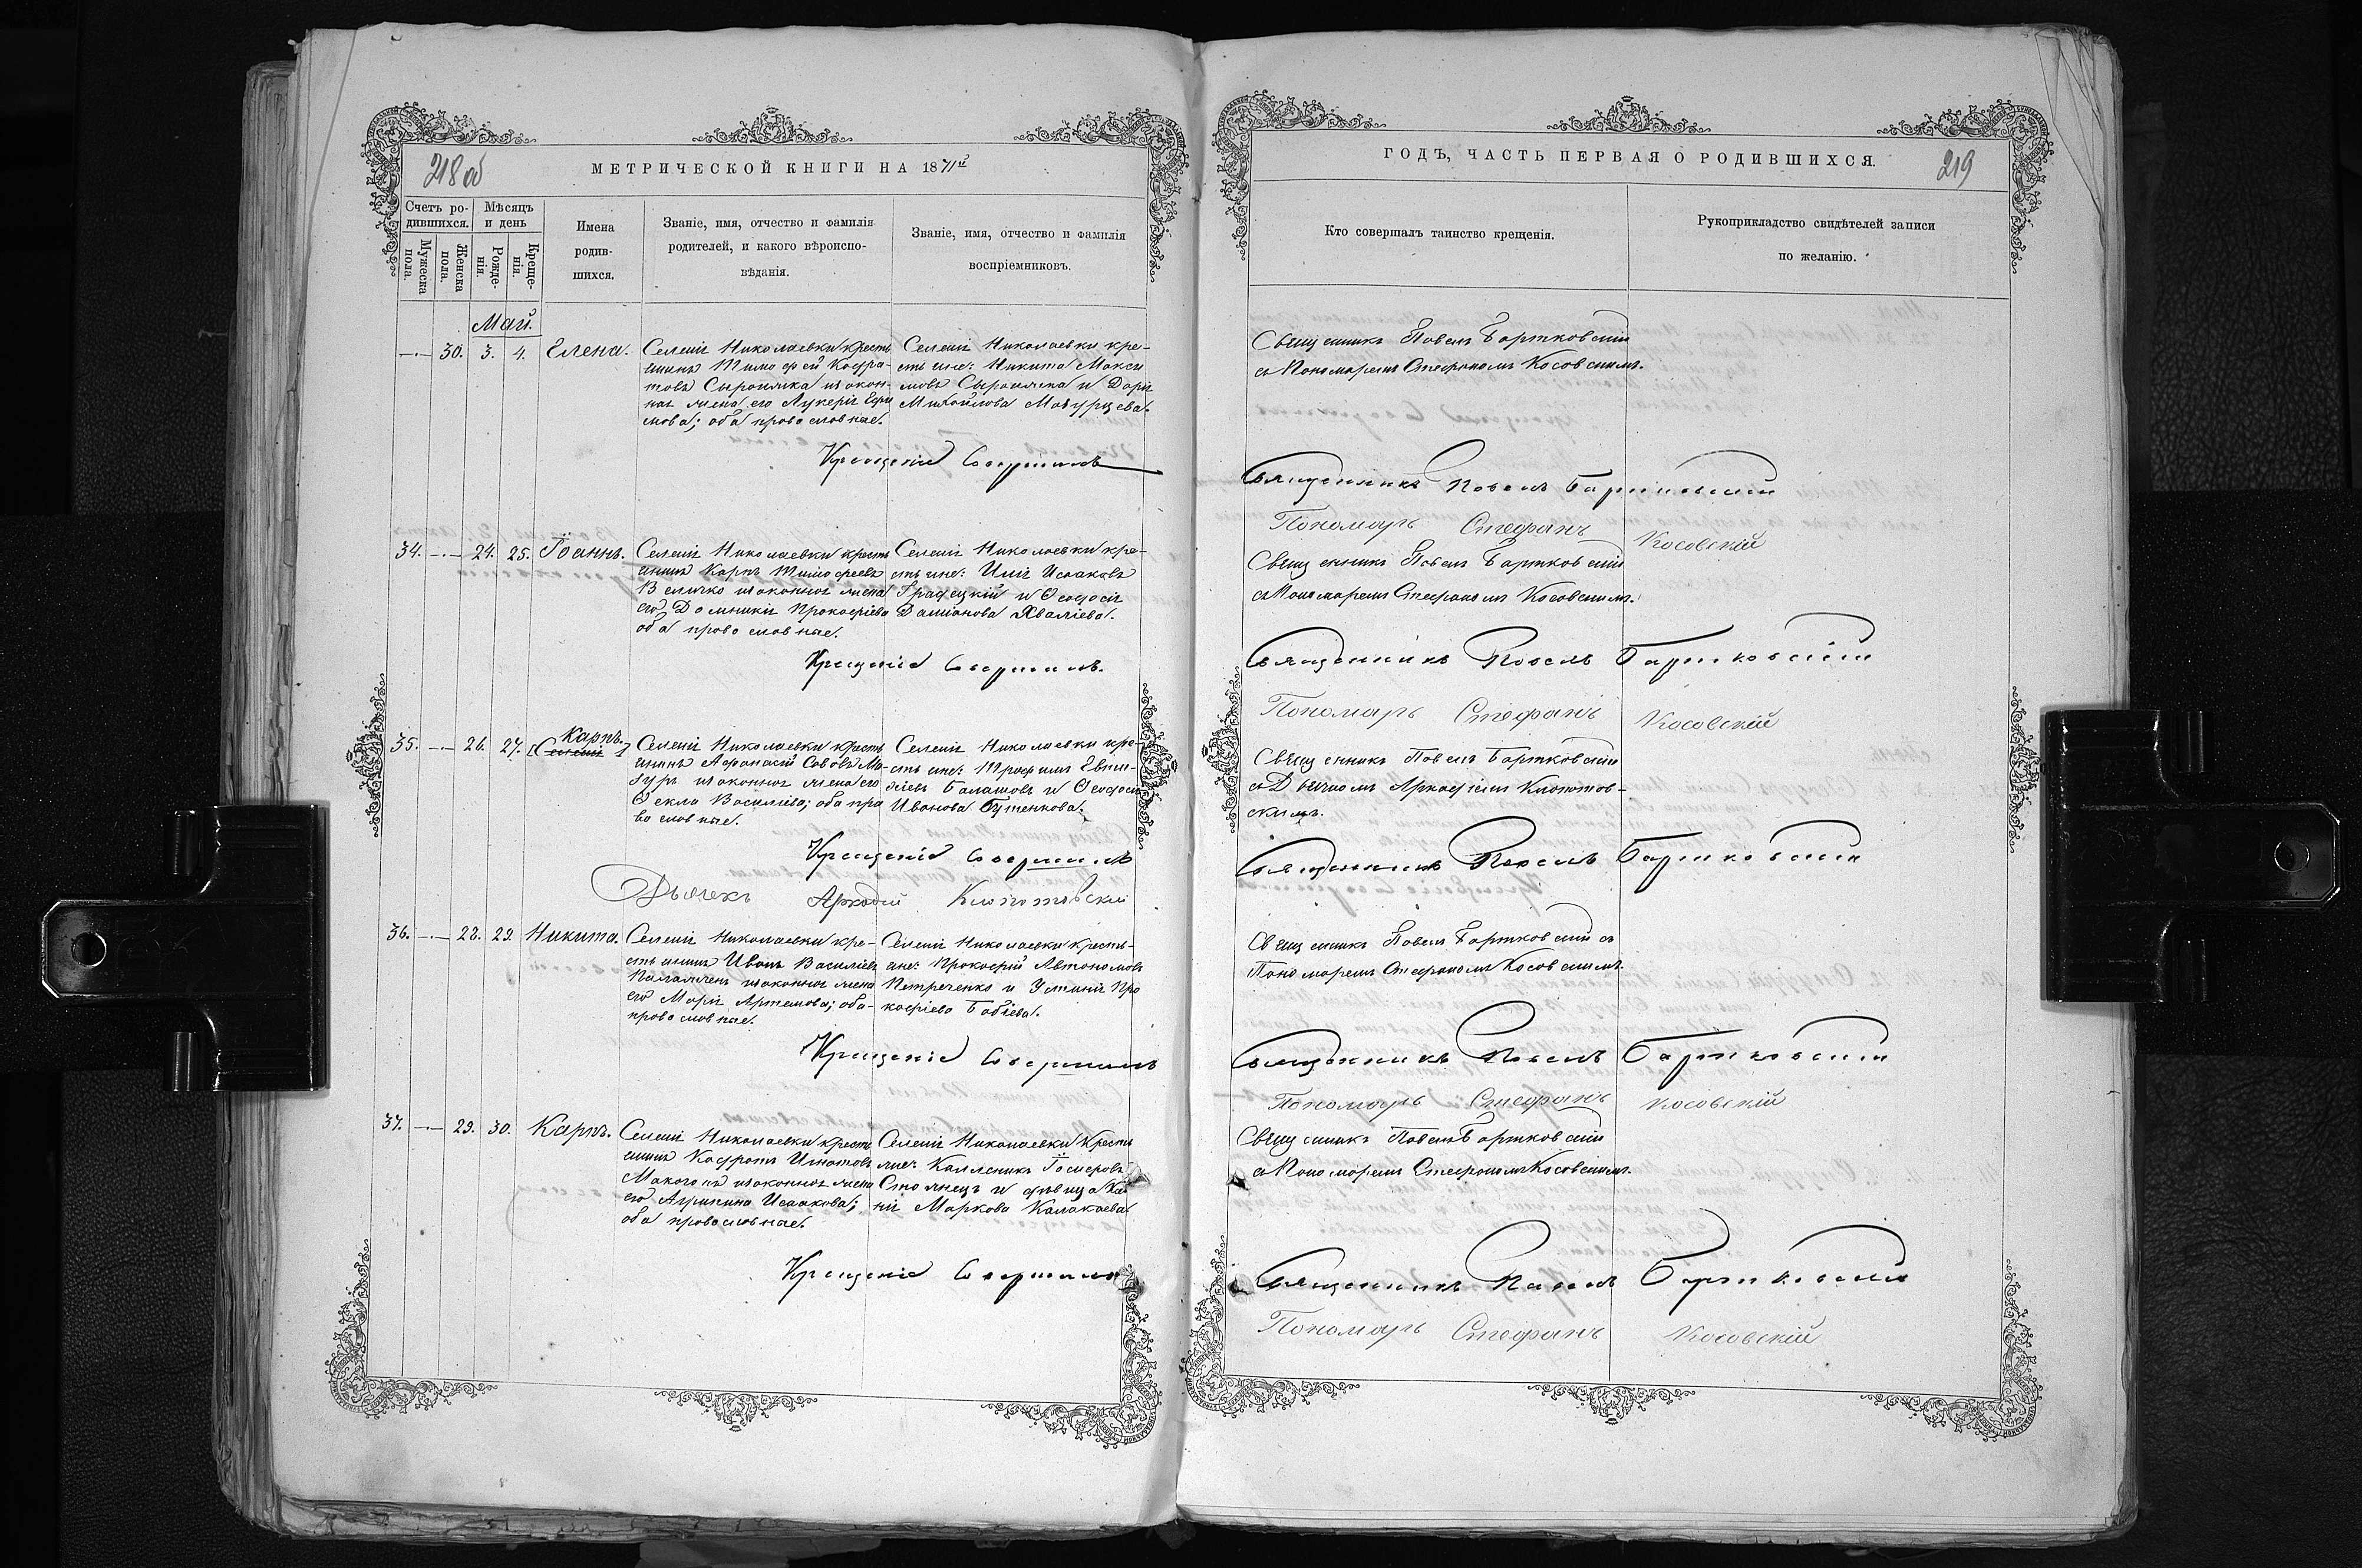 218 об
МЕТРИЧЕСКОЙ КНИГИ НА 1871й
Счетъ ро-
дившихся.
Мужеска
пола.
Женска
пола.
Мѣсяцъ
и день
Рожде-
нія.
Креще-
нія.
Имена
родив-
шихся.
Званіе, имя, отчество и фамилія
родителей, и какого вѣроиспо-
вѣданія.
Званіе, имя, отчество и фамилія
воспріемниковъ.
Май.
30. 3. 4. Елена.
Селенія Николаевки кресть
янинъ Тимофей Кодра-
товъ Сыроияка и закон-
ная жена его Лукерія Ефи
мова; оба православные.
Селенія Николаевки кре-
стьяне: Никита Макси
мовъ Сыроияка и Дарія
Михайлова
Крещеніе совершилъ
34. 24. 25. Іоаннъ.
Селенія Николаевки кресть
янинъ Карпъ Тимофеевъ
Величко и законная жена
его Домникія Прокофіева
оба православные.
Селенія Николаевки кре-
стьяне: Илія Исааковъ
Градецкій и Ѳеодосія
Даміанова
Крещеніе совершилъ.
35. 26. 27. Карпъ.
Селенія Николаевки кресть
янинъ Афанасій Саввовъ Ма-
зуръ и законная жена его
Ѳекла Василіева; оба пра
вославные.
Селенія Николаевки кре-
стьяне: Трофимъ Евти-
хіевъ Балашовъ и Ѳеодосія
Иванова Бутенкова.
Крещеніе совершилъ
Дьячекъ Аркадій
36. 28. 29. Никита.
Селенія Николаевки кре-
стьянинъ Иванъ Василіевъ
и законная жена
его Марія Артемова; оба
православные.
Селенія Николаевки кресть-
яне: Прокофій Автономовъ
Петреченко и Устинія Про
кофіева Бабіева.
Крещеніе совершилъ
37. 29. 30. Карпъ.
Селенія Николаевки кресть
янинъ Кодратъ Игнатовъ
Макогонъ и законная жена
его Агрипина Исаакова;
оба православные.
Селенія Николаевки кресть
яне: Каленикъ
Стоянецъ и дѣвица
Маркова Калакаева.
Крещеніе совершилъ
ГОДЪ, ЧАСТЬ ПЕРВАЯ О РОДИВШИХСЯ.
219
Кто совершалъ таинство крещенія.
Рукоприкладство свидѣтелей записи
по желанію.
Священникъ Павелъ Бартковскій
съ Пономаремъ Стефаномъ Косовскимъ.
Священникъ Павелъ Бартковскій
Пономарь Стефанъ Косовскій
Священникъ Павелъ Бартковскій
съ Пономаремъ Стефаномъ Косовскимъ.
Священникъ Павелъ Бартковскій
Пономарь Стефанъ Косовскій
Священникъ Павелъ Бартковскій
съ Дьячкомъ Аркадіемъ
скимъ.
Священникъ Павелъ Бартковскій
Священникъ Павелъ Бартковскій съ
Пономаремъ Стефаномъ Косовскимъ.
Священникъ Павелъ Бартковскій
Пономарь Стефанъ Косовскій
Священникъ Павелъ Бартковскій
съ Пономаремъ Стефаномъ Косовскимъ.
Священникъ Павелъ Бартковскій
Пономарь Стефанъ Косовскій